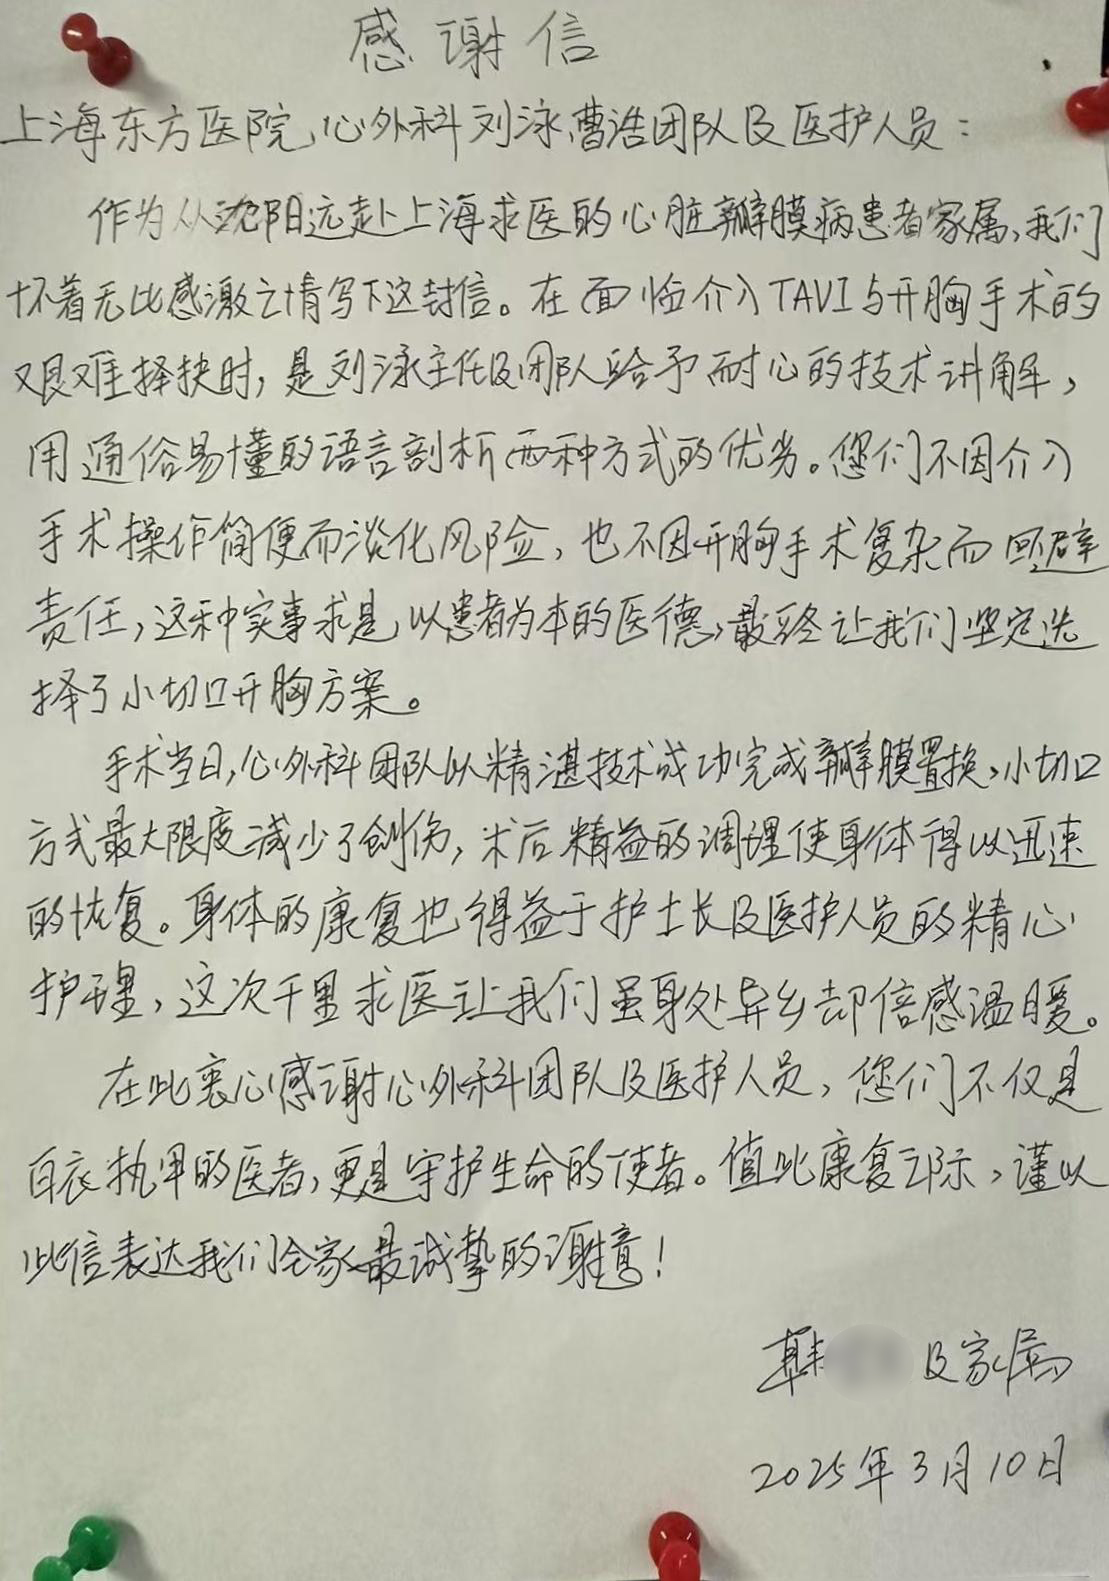 感谢信
上海东方医院心外科刘泳、曹浩团队及医护人员：
作为从沈阳远赴上海求医的心脏瓣膜病患者家属，我们
怀着无比感激之情写下这封信。在面临介入TAVI与开胸手术的
艰难择抉时，是刘泳主任及团队给予耐心的技术讲解，
用通俗易懂的语言剖析两种方式的优劣。您们不因介入
手术操作简便而淡化风险，也不因开胸手术复杂而回避
责任，这种实事求是，以患者为本的医德，最终让我们坚定选
择了小切口开胸方案。
手术当日，心外科团队以精湛技术成功完成瓣膜置换，小切口
方式最大限度减少了创伤，术后精益的调理使身体得以迅速
的恢复。身体的康复也得益于护士长及医护人员的精心
护理，这次千里求医让我们虽身处异乡却倍感温暖。
在此衷心感谢心外科团队及医护人员，您们不仅是
白衣执甲的医者，更是守护生命的使者。值此康复之际，谨以
此信表达我们全家最诚挚的谢意！
韩 及家属
2025年3月10日